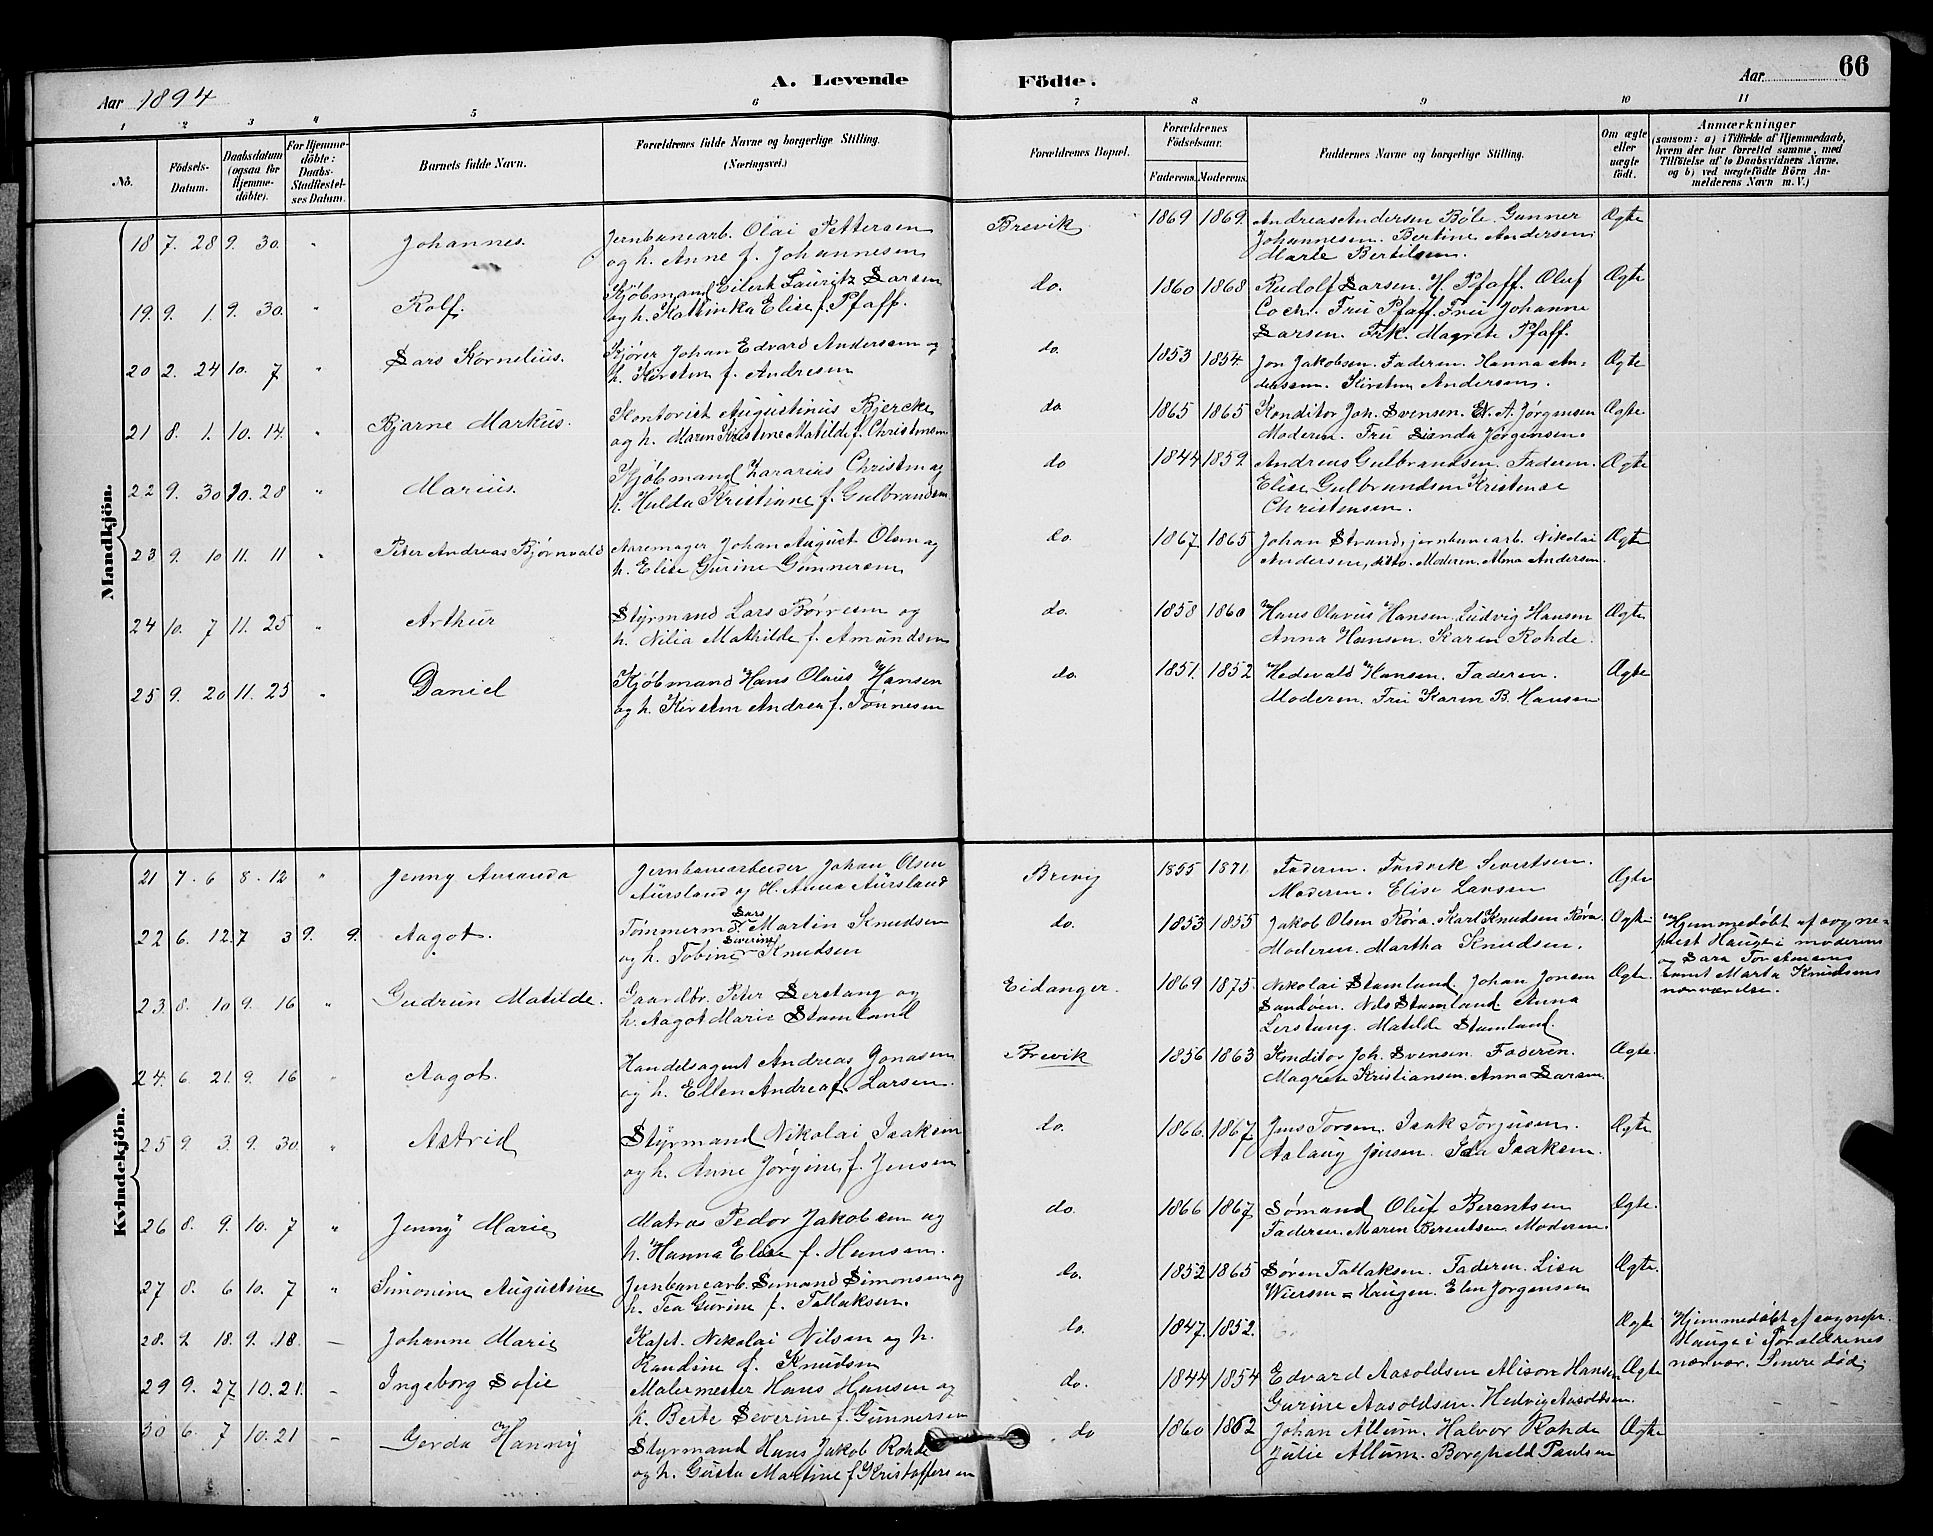 A. Levende Fødte.
Aar 1894
Aar 66
1 2 3 4 5 6 7 8 9 10 11
No.
Födsels-Datum.
Daabsdatum (ogsaa for Hjemmedöbte).
For Hjemmedöbte: Daabs-Stadfæstelses Datum.
Barnets fulde Navn.
Forældrenes fulde Navne og borgerlige Stilling. (Næringsvei.)
Forældrenes Bopæl.
Forældrenes Födselsaar.
Faderens. Moderens.
Faddernes Navne og borgerlige Stilling.
Om ægte eller uægte födt.
Anmærkninger (saasom: a) i Tilfælde af Hjemmedaab, hvem der har forrettet samme, med Tilföielse af to Daabsvidners Navne, og b) ved uægtefödte Börn Anmelderens Navn m. V.)
Mandkjön.
18 7. 28 9. 30. " Johannes. Jernbanearb. Olai Pettersen og h. Anne f. Johannesen Brevik 1869 1869. Andreas Andersen Bøle. Gunner Johannesen. Bertine Andersen. Marte Bertilsen. Ægte
19. 9. 1. 9. 30. " Rolf. Kjøbmand Eilert Lauritz Larsen og h. Kathinka Elise f. Pfaff. do. 1860 1868 Rudolf Larsen. H. Pfaff. Oluf Coch. Fru Pfaff. Fru Johanne Larsen. Frk. Magrete Pfaff. Ægte
20 2. 24 10. 7 " Lars Kornelius. Kjører Johan Edvard Andersen og h. Kirsten f. Andresen do. 1853 1854. Jon Jakobsen. Faderen. Hanna Andersen. Kirsten Andersen. Ægte
21 8. 1. 10. 14. " Bjarne Markus. Kontorist Augustinus Bjercke og h. Maren Kristine Matilde f. Christensen do 1865 1865 Konditor Joh. Svensen. A. Jørgensen Moderen. Fru Jørgensen. Ægte
22 9. 30 10. 28 " Marius. Kjøbmand Zararius Christen og h. Hulda Kristiane f. Gulbrandsen do 1844 1859 Andreas Gulbrandsen. Faderen. Elise Gulbrandsen Kristense Christensen. Ægte
23 9. 10 11. 11 " Peter Andreas Bjørnvald Aaremager Johan August Olsen og h. Elise Gurine Gunnersen do. 1867 1865 Johan Strand, jernbanearb. Nikolai Andersen, ditto. Moderen. Alma Andersen. Ægte
24 10. 7 11. 25 " Arthur Styrmand Lars Børresen og h. Nilia Mathilde f. Amundsen do. 1858 1860 Hans Olavus Hansen. Ludvig Hansen Anna Hansen. Karen Rohde. Ægte
25 9. 20 11. 25 " Daniel Kjøbmand Hans Olaus Hansen og h. Kirsten Andrea f. Tønnesen do. 1851. 1852 Hedevald Hansen. Faderen. Moderen. Fru Karen B. Hansen Ægte
Kvindekjön.
21 7. 6 8. 12 " Jenny Amanda Jernbanearbeider Johan Olsen Aursland og H. Anna Aursland Brevig 1855 1871. Faderen. Fredrik Sivertsen. Moderen. Elise Larsen Ægte
22 6. 12. 7 3 9. 9. Aagot. Tømmermd. Lars Martin Knudsen og h. Tobine Severine Knudsen do. 1853 1855 Jakob Olsen Røra. Karl Knudsen Røra. Moderen. Martha Knudsen. Ægte Hjemmedøbt af sogneprest Hauge i moderens og Sara Torstensens samt Marta Knudsens nærværelse.
23. 8. 10 9. 16 " Gudrun Matilde. Gaardbr. Peter Lerstang og h. Aagot Marie Stamland Eidanger. 1869 1875. Nikolai Stamland Johan Jonsen Sandøen. Nils Stamland Anna Lerstang. Matilde Stamland. Ægte.
24. 6. 21. 9. 16 " Aagot. Handelsagent Andreas Jonasen og h. Ellen Andrea f. Larsen. Brevik 1856 1863 Konditor Joh. Svensen. Faderen. Magrete Kristiansen. Anna Larsen. Ægte.
25 9. 3. 9. 30. " Astrid Styrmand Nikolai Isaksen og h. Anne Jørgine f. Jensen do. 1866. 1867 Jens Torsen. Isak Torjusen. Aslaug Jensen. Ida Isaksen. Ægte
26 8. 9. 10. 7 " Jenny Marie Matros Pedor Jakobsen og h. Hanna Elise f. Hansen. do. 1866 1867 Sømand Oluf Berentsen Faderen. Maren Berentsen. Moderen. Ægte.
27 8. 6 10. 7 " Simonine Augustine Jernbanearb. Simond Simonsen og h. Tea Gurine f. Tallaksen. do. 1852 1865 Søren Tallaksen. Faderen. Lisa Wiersen = Haugen. Elen Jørgensen Ægte.
28. 2 18. 9. 18. — Johanne Marie Kapt. Nikolai Nilsen og h. Randine f. Knudsen do. 1847. 1852. Ægte Hjemmedøbt af sognepr. Hauge i Forældrenes nærvær. Senere død.
29 9. 27 10. 21. — Ingeborg Sofie Malermester Hans Hansen og h. Berte Severine f. Gunnersen do. 1844 1854 Edvard Aasoldsen Alison Hansen Gurine Aasoldsen. Hedvig Aasoldsen. Ægte
30 6. 7 10. 21 — Gerda Hanny Styrmand Hans Jakob Rohde og h. Gusta Martine f. Kristoffersen do 1860 1862 Johan Allum. Halvor Rohde Julie Allum. Borghild Paulsen Ægte